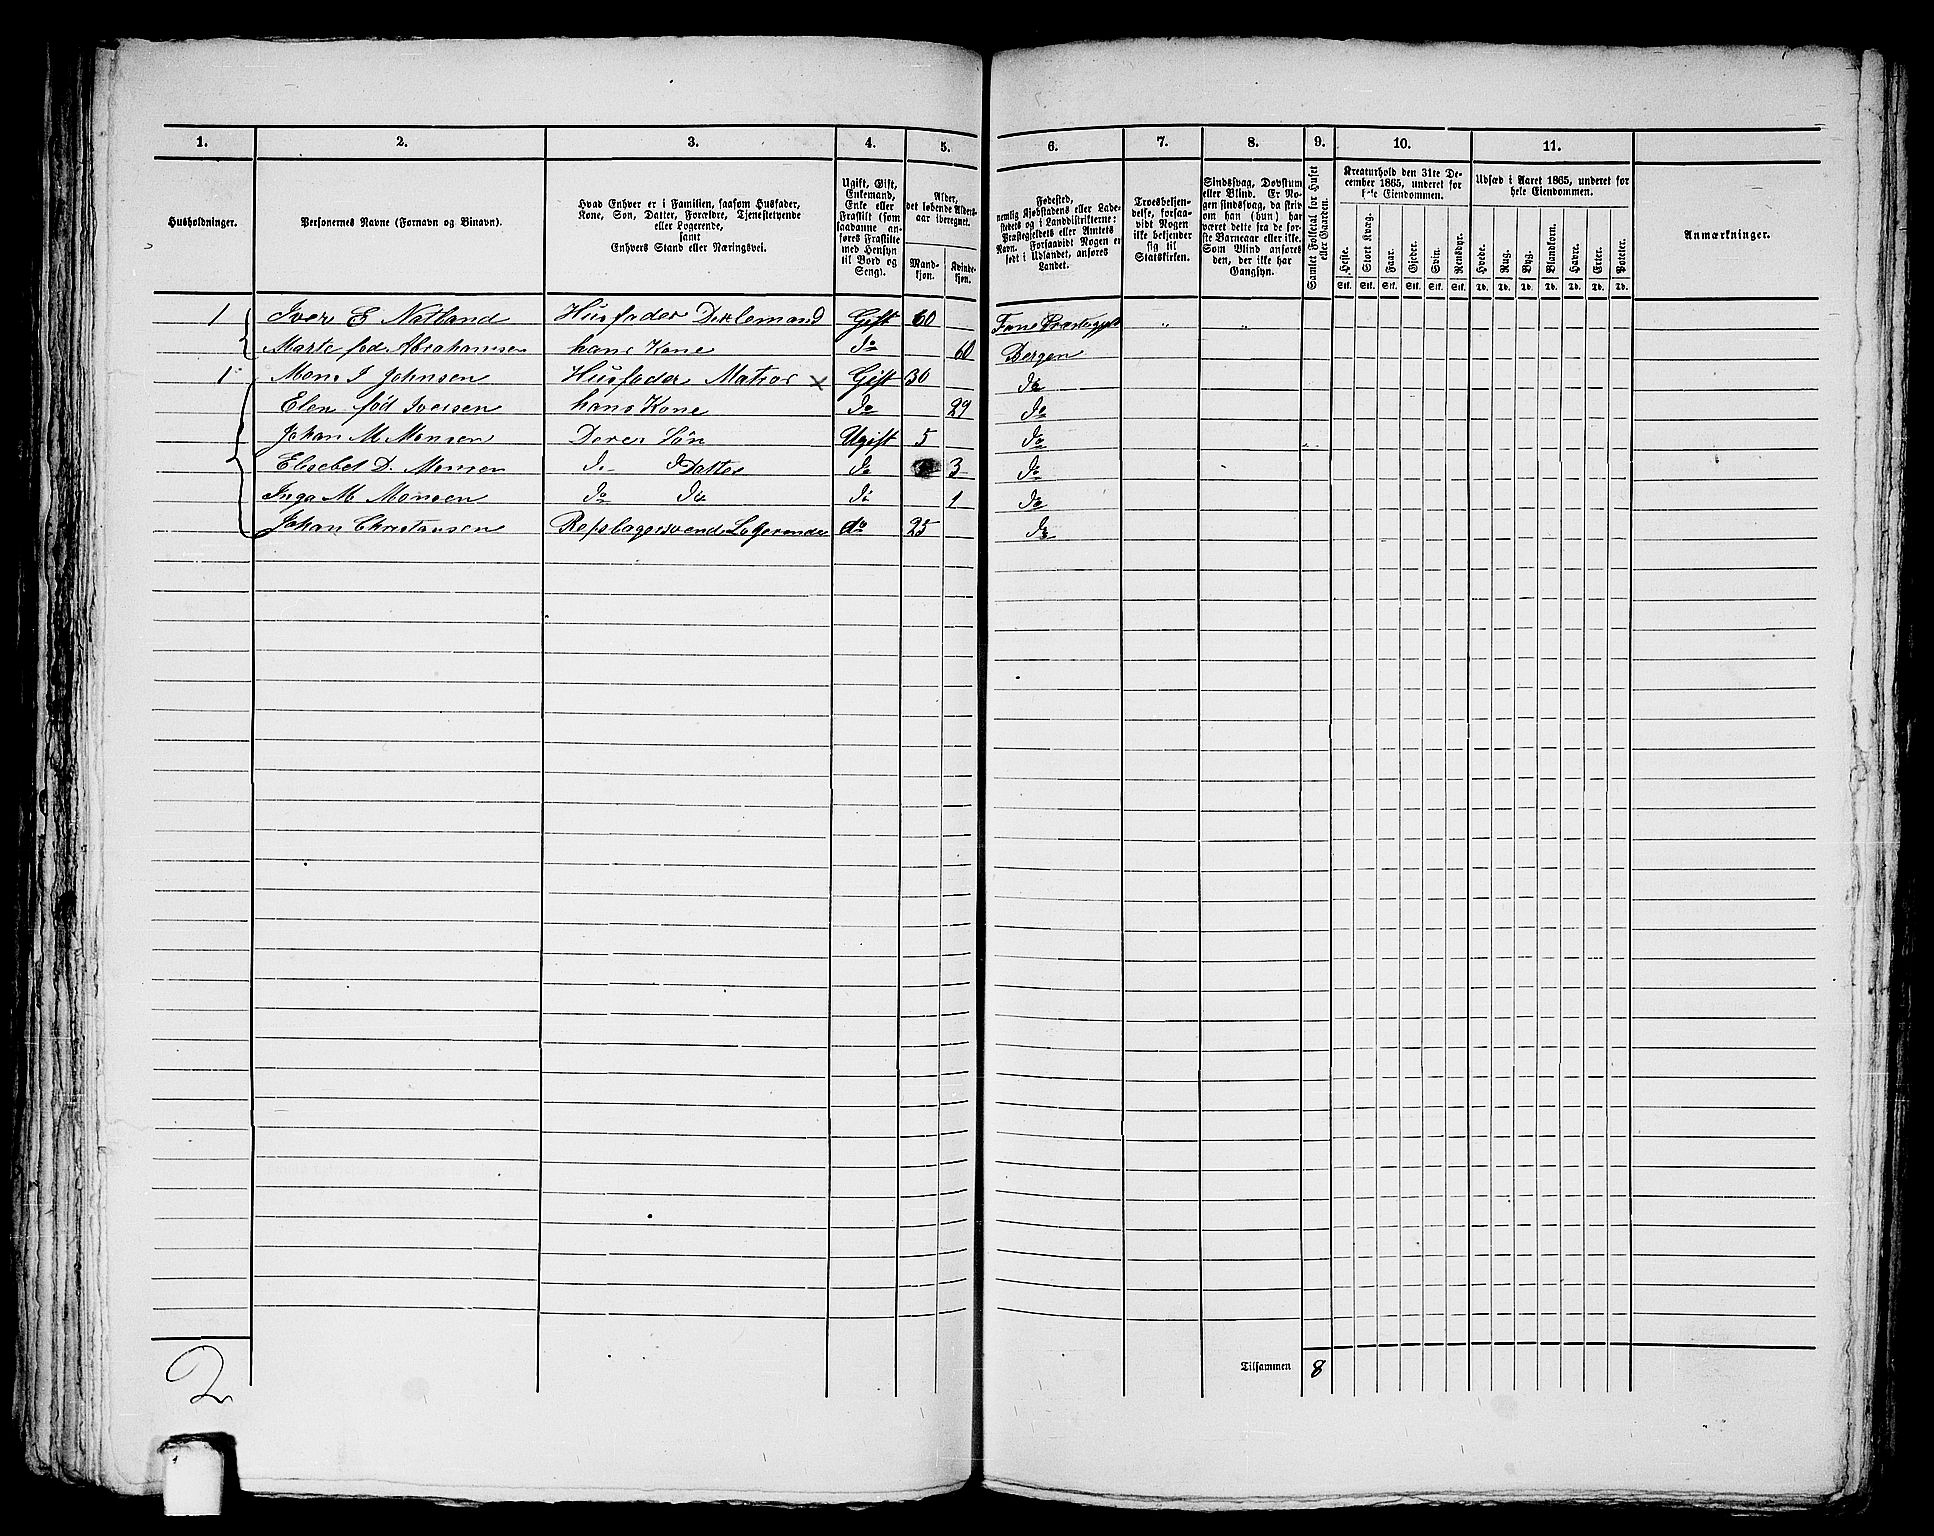 1. 2. 3. 4. 5. 6. 7. 8. 9. 10. 11.
Husholdninger.
Personernes Navne (Fornavn og Binavn).
Hvad Enhver er i Familien, saasom Husfader,
Kone, Søn, Datter, Forældre, Tjenestetyende
eller Logerende,
samt
Enhvers Stand eller Næringsvei.
Ugift, Gift,
Enkemand,
Enke eller
Fraskilt (som
saadanne an-
føres Fraskilte
med Hensyn
til Bord og
Seng).
Alder,
det løbende Alders-
aar iberegnet.
Mand-
kjøn.
Kvinde-
kjøn.
Fødested,
nemlig Kjøbstadens eller Lade-
stedets og i Landdistrikterne:
Præstegjeldets eller Amtets
Navn. Forsaavidt Nogen er
født i Udlandet, anføres
Landet.
Troesbekjen-
delse, forsaa-
vidt Nogen
ikke bekjender
sig til
Statskirken.
Sindssvag, Døvstum
eller Blind. Er No-
gen sindssvag, da skriv
om han (hun) har
været dette fra de før-
ste Barneaar eller ikke.
Som Blind anføres
den, der ikke har
Gangsyn.
Samlet Folketal for Huset
eller Gaarden.
Kreaturhold den 31te De-
cember 1865, underet for
hele Eiendommen.
Heste. Stort Kvæg. Faar. Gjeder. Svin. Rensdyr.
Stk. Stk. Stk. Stk. Stk. Stk.
Udsæd i Aaret 1865, underet for
hele Eiendommen.
Hvede. Rug. Byg. Blandkorn. Havre. Erter. Poteter.
Td. Td. Td. Td. Td. Td. Td.
Anmærkninger.
1 Iver E Natland Husfader Gift 60 Fane " "
Marte fød Abrahamsen hans Kone do 60 Bergen
1 Mons I Johnsen Husfader Matros x Gift 30 do
Elen fød Iversen hans Kone do 29 do
Johan M Monsen Deres Søn Ugift 5 do
Elisebet D. Monsen do Datter do 3 do
Inga M Monsen do do do 1 do
Johan Christansen Repslagersvend Logerende do 25 do
Tilsammen 8
2